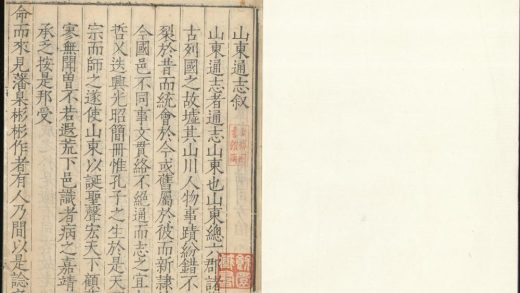 山東通志叙
山東通志者通志山東也山東總六郡諸
古列國之故墟其山川人物事蹟紛錯不
裂於昔而統會於今或舊屬於彼而新隷
今國邑不同事文貫絡不絶通而志之宜
哲乂迭興光昭簡冊惟孔子之生於是天
宗而師之遂使山東以誕聖聲宏天下顧
寒無聞曽不若遐荒下邑識者病之嘉靖
承乏按是邦受
命而來見藩臬彬彬作者有人乃間以是諗